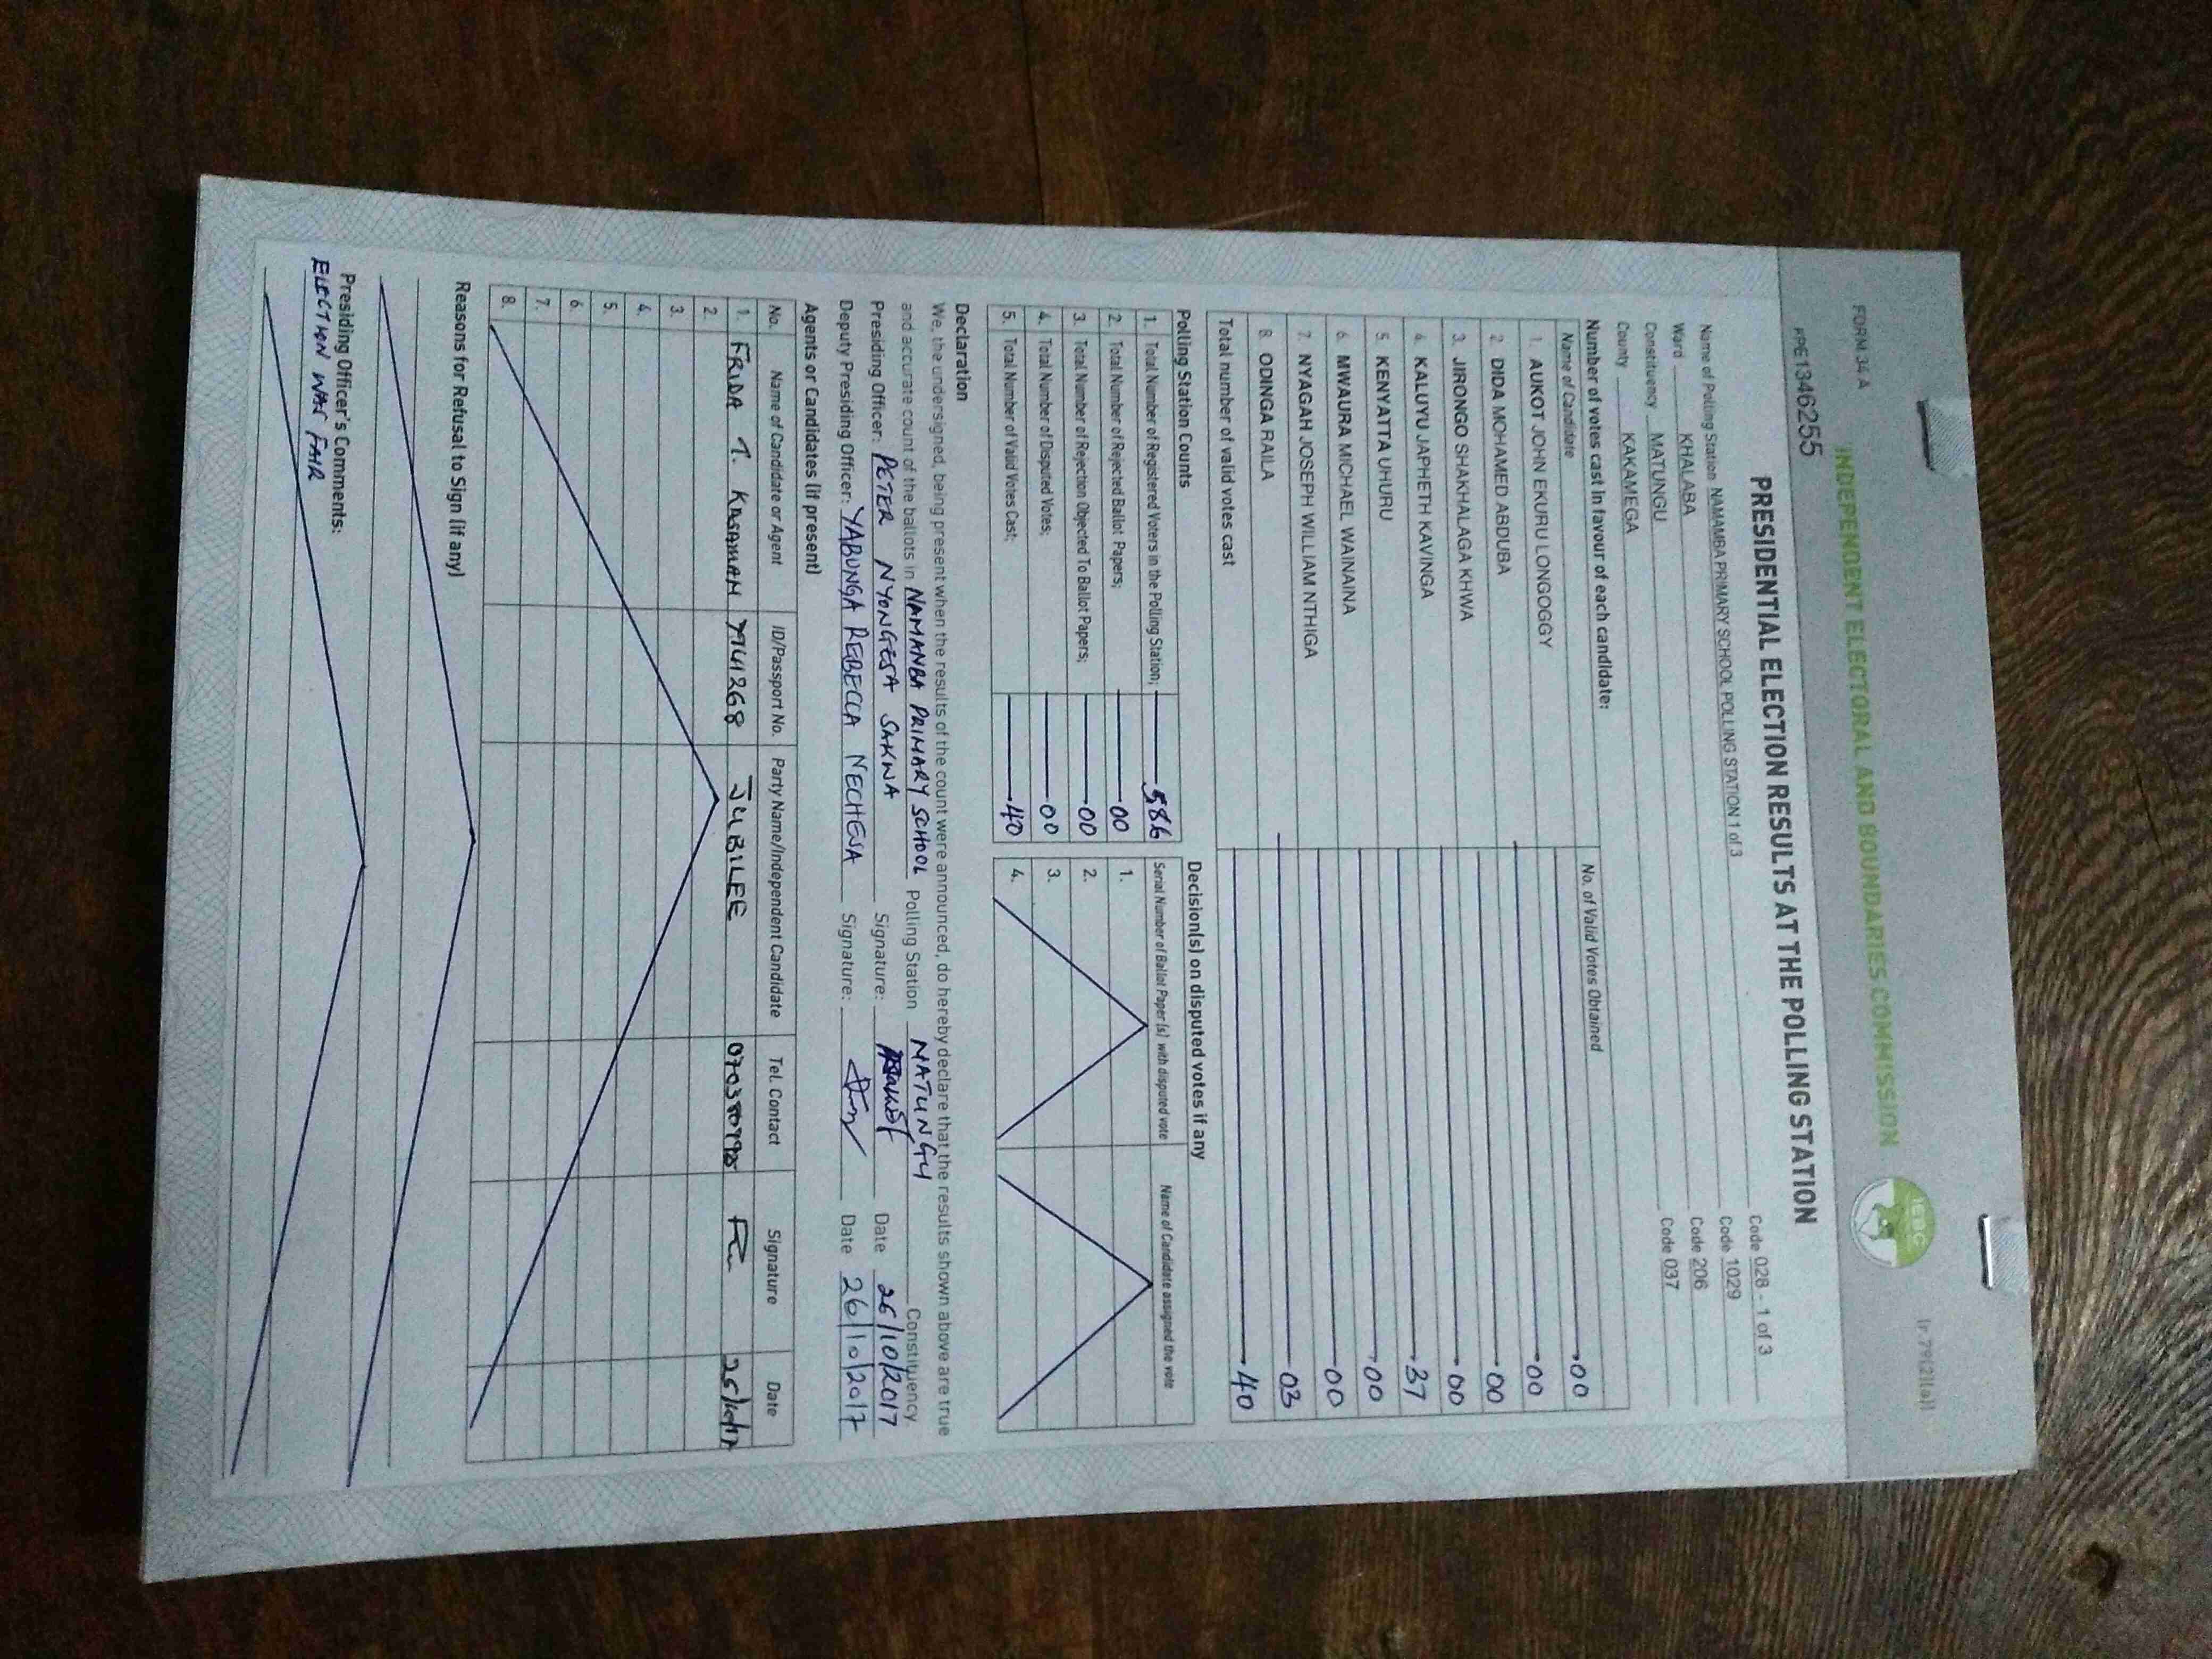 FORM 34 A
(r 79(2)(a))
INDEPENDENT ELECTORAL AND BOUNDARIES COMMISSION
IEBC
PPE1346255
PRESIDENTIAL ELECTION RESULTS AT THE POLLING STATION
Name of Polling Station NAMAMBA PRIMARY SCHOOL POLLING STATION 1 of 3 Code 028 - 1 of 3
Ward KHALABA Code 1029
Constituency MATUNGU Code 206
County KAKAMEGA Code 037
Number of votes cast in favour of each candidate:
Name of Candidate No. of Valid Votes Obtained
1. AUKOT JOHN EKURU LONGOGGY 00
2. DIDA MOHAMED ABDUBA 00
3. JIRONGO SHAKHALAGA KHWA 00
4. KALUYU JAPHETH KAVINGA 00
5. KENYATTA UHURU 37
6. MWAURA MICHAEL WAINAINA 00
7. NYAGAH JOSEPH WILLIAM NTHIGA 00
8. ODINGA RAILA 03
Total number of valid votes cast 40
Polling Station Counts
1. Total Number of Registered Voters in the Polling Station; 586
2. Total Number of Rejected Ballot Papers; 00
3. Total Number of Rejection Objected To Ballot Papers; 00
4. Total Number of Disputed Votes; 00
5. Total Number of Valid Votes Cast; 40
Decision(s) on disputed votes if any
Serial Number of Ballot Paper (s) with disputed vote Name of Candidate assigned the vote
1.
2.
3.
4.
Declaration
We, the undersigned, being present when the results of the count were announced, do hereby declare that the results shown above are true
and accurate count of the ballots in NAMANBA PRIMARY SCHOOL Polling Station MATUNGU Constituency.
Presiding Officer: PETER NYONGESA SAKWA Signature: Date 26/10/2017
Deputy Presiding Officer: YABUNGA REBECCA NECHESA Signature: Date 26/10/2017
Agents or Candidates (if present)
No. Name of Candidate or Agent ID/Passport No. Party Name/Independent Candidate Tel. Contact Signature Date
1. FRIDA T. 7941268 JUBILEE
2.
3.
4.
5.
6.
7.
8.
Reasons for Refusal to Sign (if any)
Presiding Officer's Comments:
ELECTION WAS FAIR